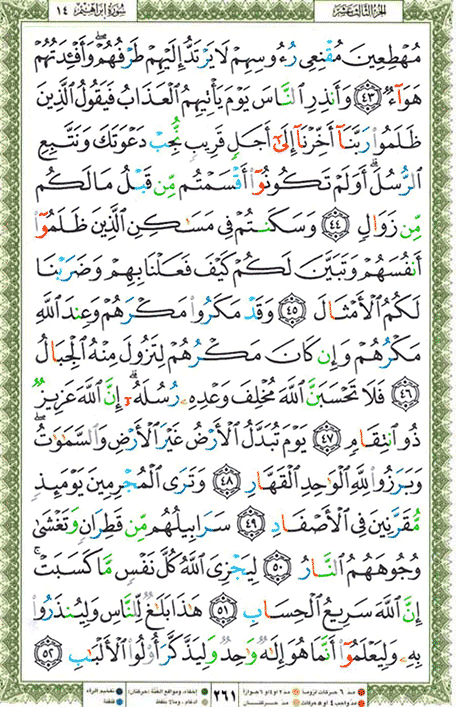 الجزء الثالث عشر
سورة إبراهيم ١٤
مُهْطِعِينَ مُقْنِعِى رُءُوسِهِمْ لَا يَرْتَدُّ إِلَيْهِمْ طَرْفُهُمْ ۖ وَأَفْـِٔدَتُهُمْ
هَوَآءٌ ٤٣ وَأَنذِرِ ٱلنَّاسَ يَوْمَ يَأْتِيهِمُ ٱلْعَذَابُ فَيَقُولُ ٱلَّذِينَ
ظَلَمُوا۟ رَبَّنَآ أَخِّرْنَآ إِلَىٰٓ أَجَلٍ قَرِيبٍ نُّجِبْ دَعْوَتَكَ وَنَتَّبِعِ
ٱلرُّسُلَ ۗ أَوَلَمْ تَكُونُوٓا۟ أَقْسَمْتُم مِّن قَبْلُ مَا لَكُم
مِّن زَوَالٍ ٤٤ وَسَكَنتُمْ فِى مَسَـٰكِنِ ٱلَّذِينَ ظَلَمُوٓا۟
أَنفُسَهُمْ وَتَبَيَّنَ لَكُمْ كَيْفَ فَعَلْنَا بِهِمْ وَضَرَبْنَا
لَكُمُ ٱلْأَمْثَالَ ٤٥ وَقَدْ مَكَرُوا۟ مَكْرَهُمْ وَعِندَ ٱللَّهِ
مَكْرُهُمْ وَإِن كَانَ مَكْرُهُمْ لِتَزُولَ مِنْهُ ٱلْجِبَالُ
٤٦ فَلَا تَحْسَبَنَّ ٱللَّهَ مُخْلِفَ وَعْدِهِۦ رُسُلَهُۥٓ ۗ إِنَّ ٱللَّهَ عَزِيزٌ
ذُو ٱنتِقَامٍ ٤٧ يَوْمَ تُبَدَّلُ ٱلْأَرْضُ غَيْرَ ٱلْأَرْضِ وَٱلسَّمَـٰوَٰتُ ۖ
وَبَرَزُوا۟ لِلَّهِ ٱلْوَٰحِدِ ٱلْقَهَّارِ ٤٨ وَتَرَى ٱلْمُجْرِمِينَ يَوْمَئِذٍ
مُّقَرَّنِينَ فِى ٱلْأَصْفَادِ ٤٩ سَرَابِيلُهُم مِّن قَطِرَانٍ وَتَغْشَىٰ
وُجُوهَهُمُ ٱلنَّارُ ٥٠ لِيَجْزِىَ ٱللَّهُ كُلَّ نَفْسٍ مَّا كَسَبَتْ ۚ
إِنَّ ٱللَّهَ سَرِيعُ ٱلْحِسَابِ ٥١ هَـٰذَا بَلَـٰغٌ لِّلنَّاسِ وَلِيُنذَرُوا۟
بِهِۦ وَلِيَعْلَمُوٓا۟ أَنَّمَا هُوَ إِلَـٰهٌ وَٰحِدٌ وَلِيَذَّكَّرَ أُو۟لُوا۟ ٱلْأَلْبَـٰبِ ٥٢
مد ٦ حركات لزوماً مد ٢ أو ٤ أو ٦ جوازاً
مد واجب ٤ أو ٥ حركات مد حركتان
٢٦١
إخفاء، ومواقع الغنة (حركتان) تفخيم الراء
إدغام، وما لا يلفظ قلقلة